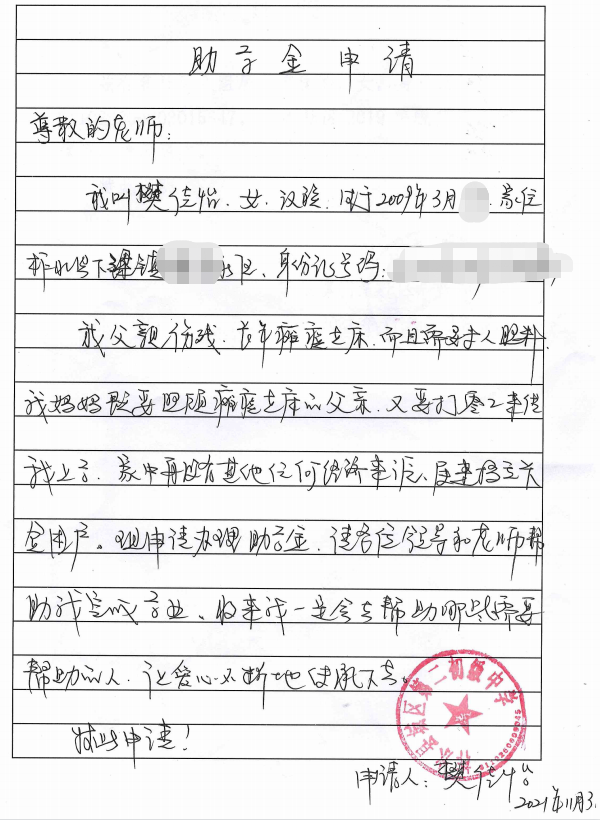 助学金申请
尊敬的老师:
我叫樊佳怡、女、汉族、生于2009年3月 家住
下 镇 社区、身份证号码:
我父親伤残、长年瘫痪在床、而且需要专人照料
我妈妈既要照顾瘫痪在床的父亲、又要打零工来供
我上学、家中再没有其他任何经济来源、是建档立
困户。现申请办理助学金、请各位领导和老师帮
助我完成学业、将来我一定会去帮助哪些需要
帮助的人、让爱心不断地传承下去。
特此申请!
区第二初级中学
申请人:樊佳怡
2021年11月3.